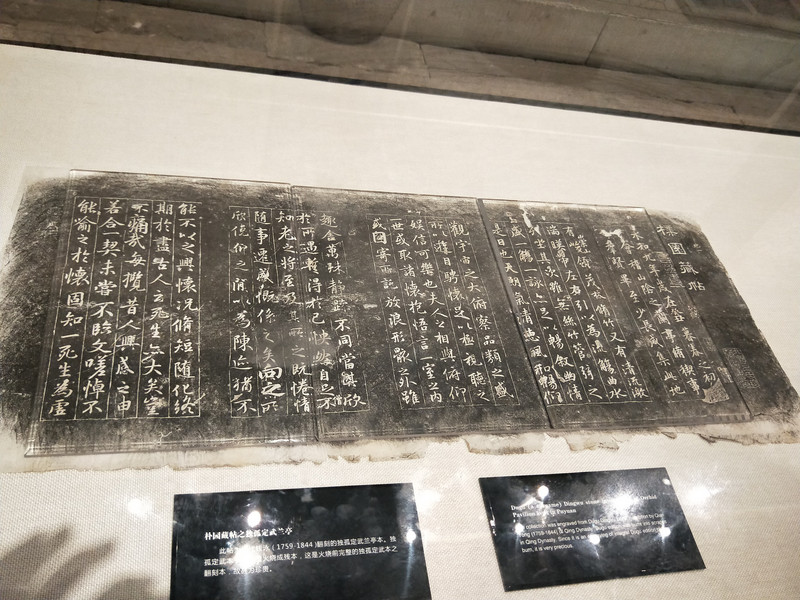 園藏帖
有崇領茂林脩竹又有清流激
湍暎帶左右引以為流觴曲水
列坐其次雖無絲竹管弦之
盛一觴一詠亦足以暢叙幽情
是日也天朗氣清惠風和暢仰
觀宇宙之大俯察品類之盛
所以遊目騁懷足以極視聽之
娛信可樂也夫人之相與俯仰
一世或取諸懷抱悟言一室之內
或因寄所託放浪形骸之外雖
趣舍萬殊靜躁不同當其欣
於所遇暫得於己快然自足不
知老之將至及其所之既倦情
隨事遷感慨係之矣向之所
欣俛仰之閒以為陳迹猶不
能不以之興懷況脩短隨化終
期於盡古人云死生亦大矣豈
不痛哉每攬昔人興感之由
若合一契未嘗不臨文嗟悼不
能喻之於懷固知一死生為虛
朴园藏帖之独孤定武兰亭
此帖 (1759-1844)翻刻的独孤定武兰亭本。独
孤定武本 火烧成残本，这是火烧前完整的独孤定武本之
翻刻本，故 珍贵。
Dugu Dingwu Orchid
Pavilion Puyuan
collection was engraved from by Qian
Yong (1759-1844) Qing Dynasty.
in Qing Dynasty. Since it is an of Dugu
burn, it is very precious.